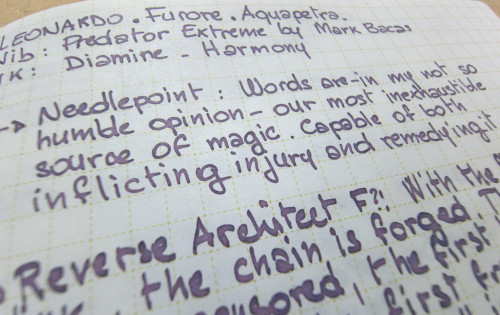 LEONARDO. Furore. Aquapetra.
Nib: Predator Extreme by Mark Bacas
K: Diamine - Harmony
→ Needlepoint: Words are-in my not so
humble opinion- our most inexhaustible
source of magic. Capable of both
inflicting injury and remedying it
Reverse Architect F?! With the
the chain is forged. T
the first
first f